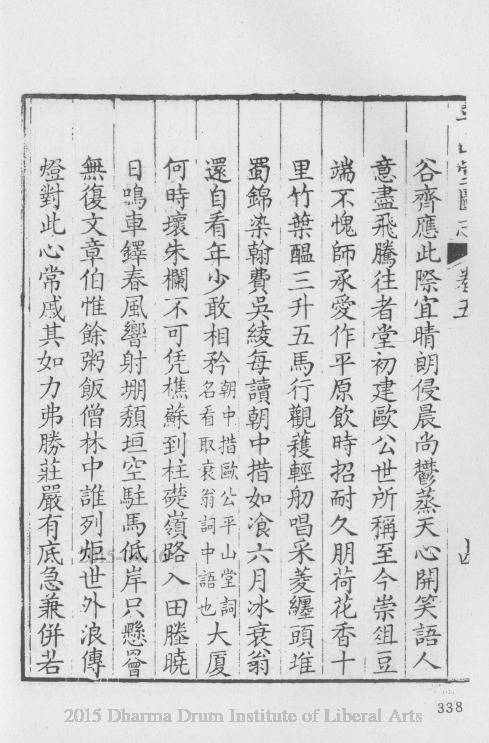 平山堂圖志 卷五
谷齊應此際宜晴朗侵晨尚鬱蒸天心開笑語人
意盡飛騰往者堂初建歐公世所稱至今崇俎豆
端不愧師承愛作平原飲時招耐久朋荷花香十
里竹葉醞三升五馬行觀穫輕舠唱采菱纏頭堆
蜀錦染翰費吳綾每讀朝中措如飡六月冰衰翁
還自看年少敢相矜朝中措歐公平山堂詞名看取衰翁詞中語也大厦
何時壞朱欄不可凭樵蘇到柱礎嶺路入田塍曉
日鳴車鐸春風響射堋頽垣空駐馬低岸只懸罾
無復文章伯惟餘粥飯僧林中誰列炬世外浪傳
燈對此心常戚其如力弗勝莊嚴有底急兼併若
338
2015 Dharma Drum Institute of Liberal Arts